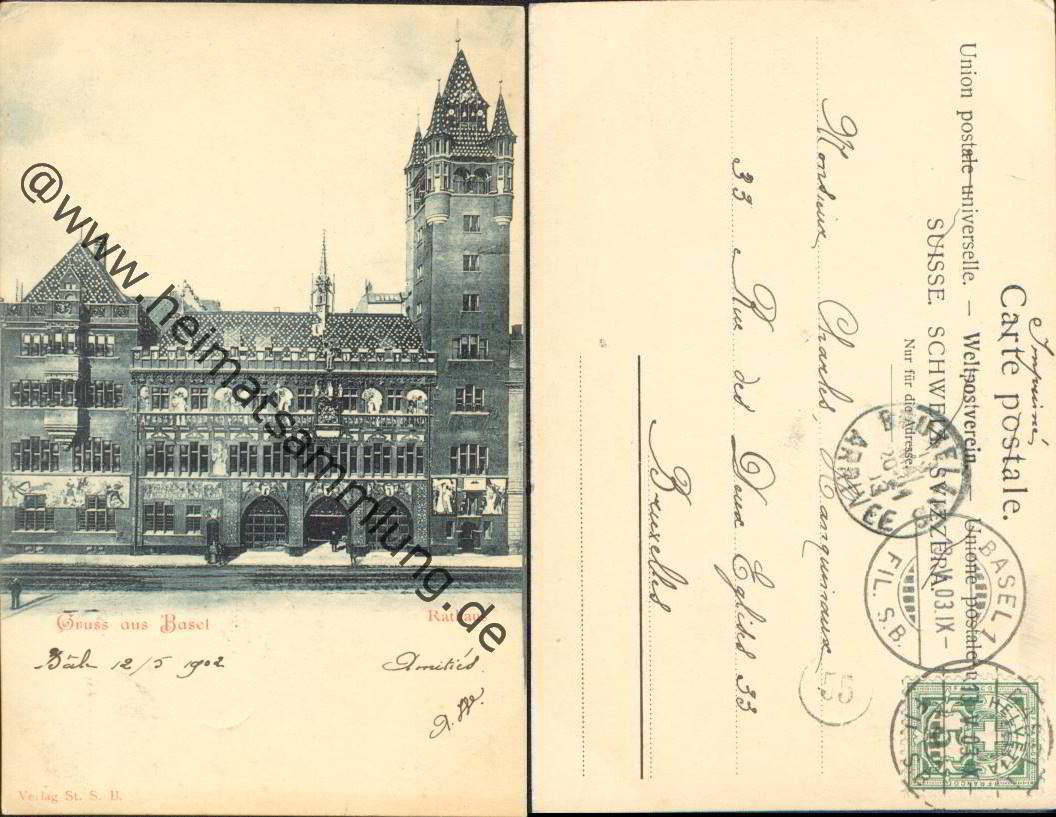 @www.heimatsammlung.de
Gruss aus Basel
Rathaus
Bâle 12/5 1902
Amitiés.
Verlag St. S. B.
Imprimé,
Carte postale.
Union postale universelle. — Weltpostverein — Unione postale
SUISSE. SCHWEIZ. SVIZZERA
Nur für die Adresse.
Monsieur Charles
33 Rue des Deux Eglises 33
Bruxelles
BRUXELLES
ARRIVÉE
BASEL 7
.03.IX–
FIL. S.B.
55
HELVETIA
5
FRANCO